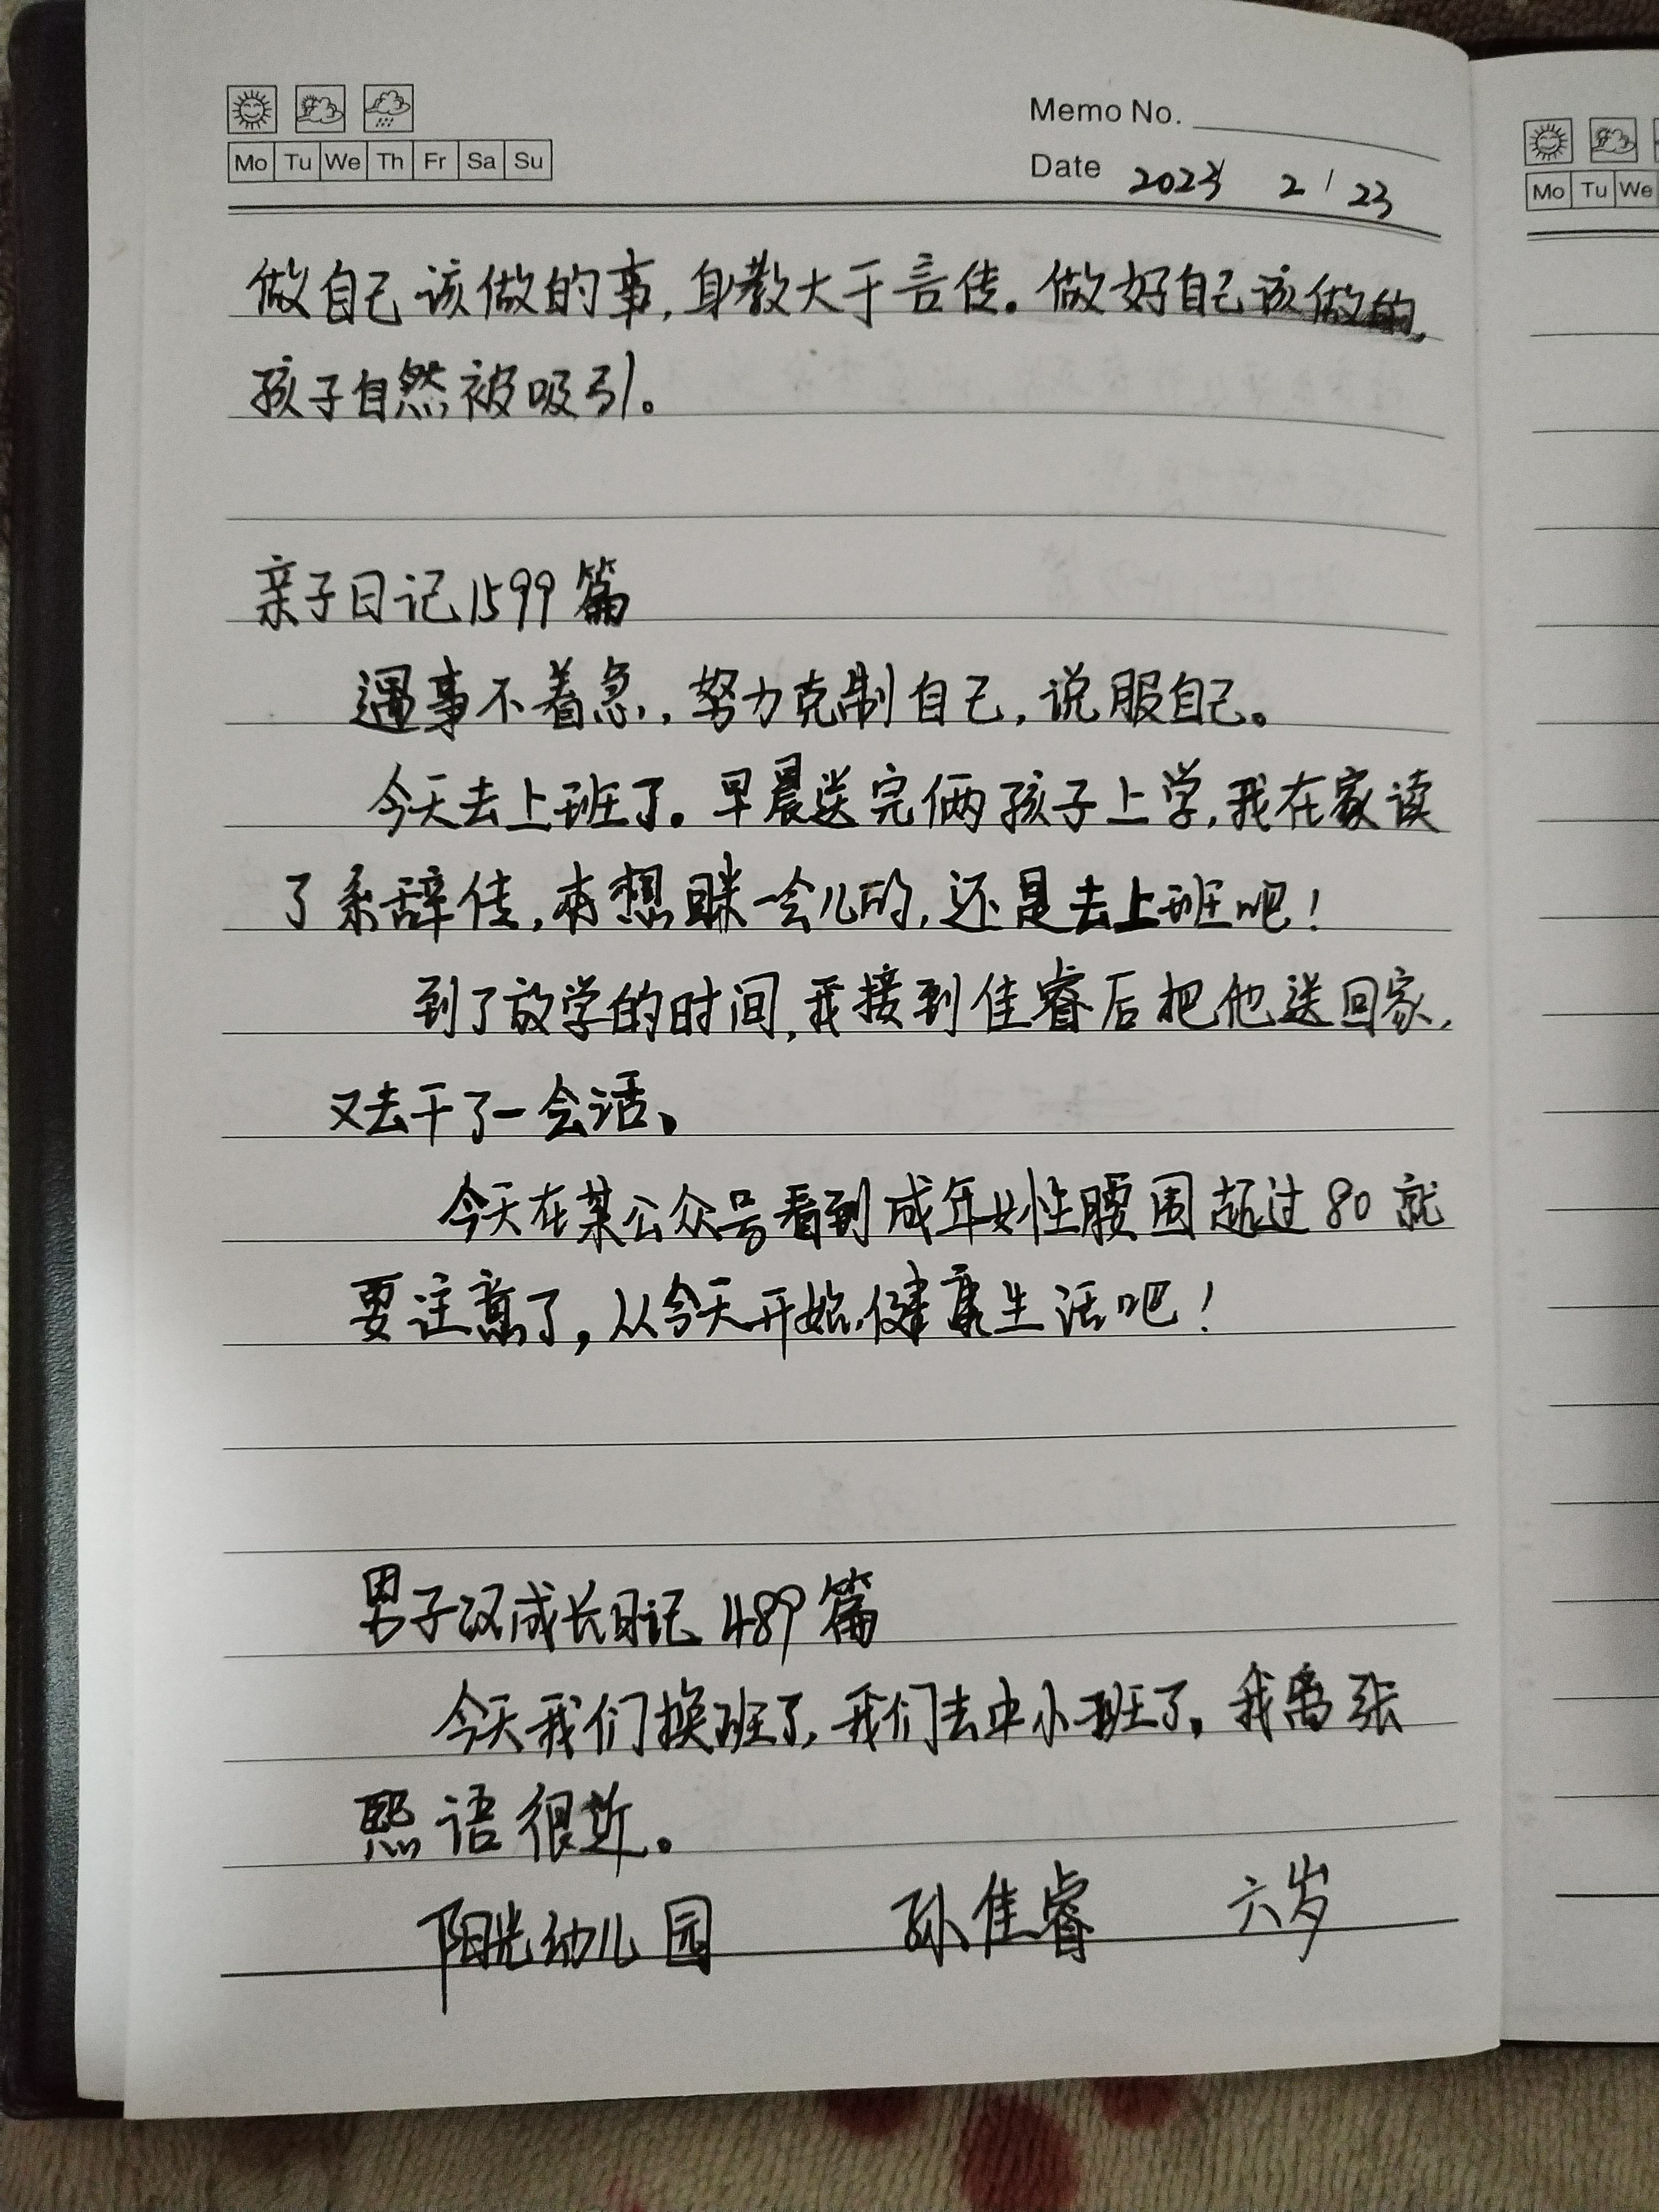 Memo No.
Mo Tu We Th Fr Sa Su
Date 2023 2/23
做自己该做的事,身教大于言传。做好自己该做的,
孩子自然被吸引。
亲子日记1599篇
遇事不着急,努力克制自己,说服自己。
今天去上班了。早晨送完俩孩子上学,我在家读
了系辞传,本想眯一会儿的,还是去上班吧!
到了放学的时间,我接到佳睿后把他送回家,
又去干了一会活、
今天在某公众号看到成年女性腰围超过80就
要注意了,从今天开始,健康生活吧!
男子汉成长日记 489篇
今天我们换班了,我们去中小班了。我离张
熙语很近。
阳光幼儿园 孙佳睿 六岁
Mo Tu We